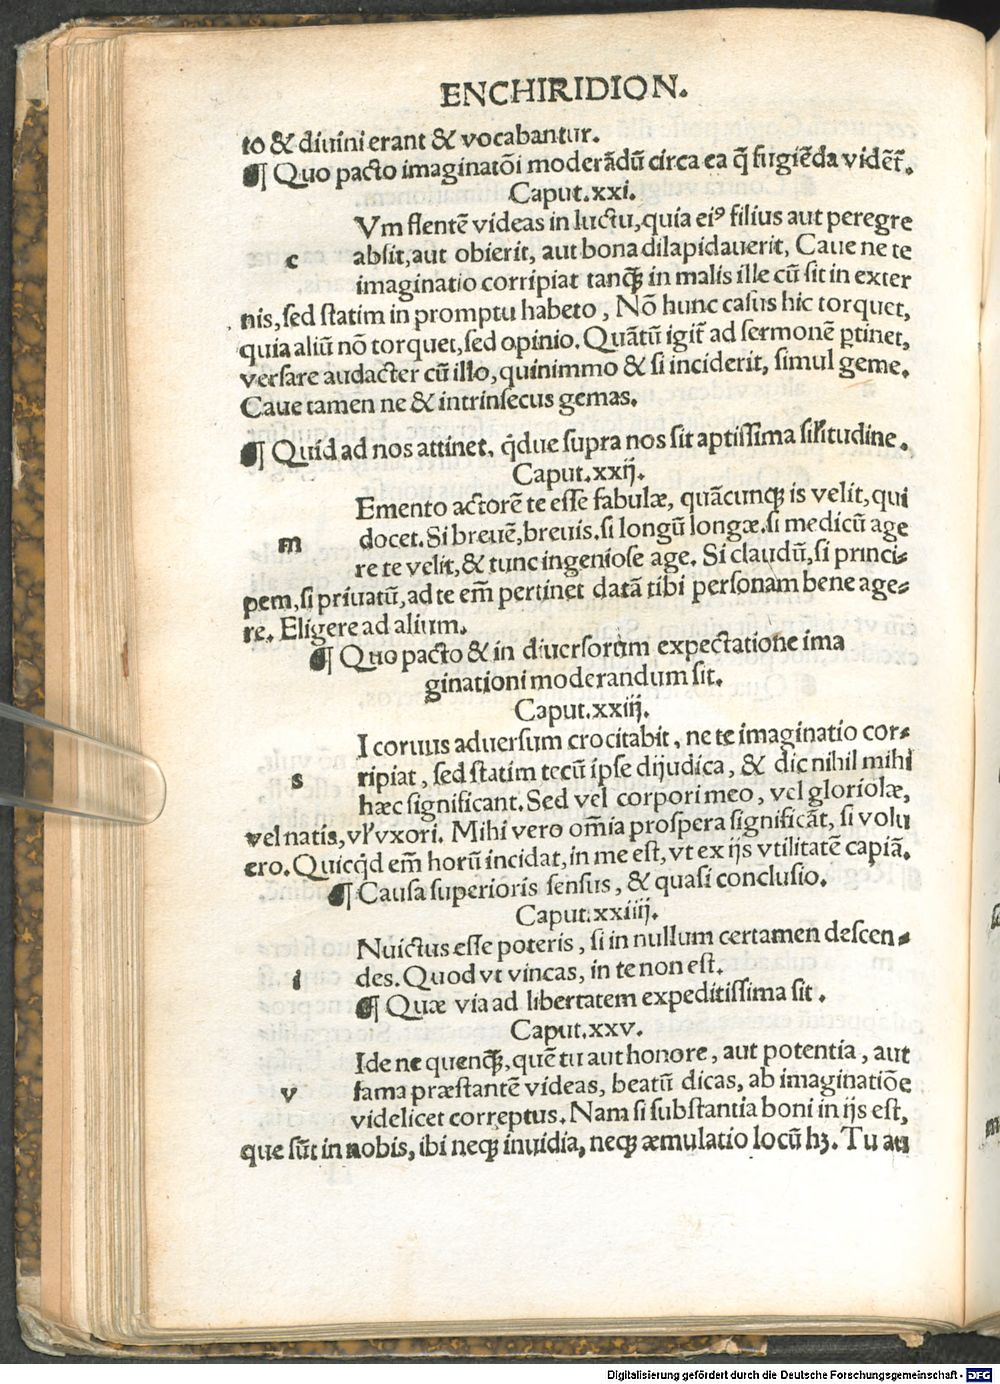 ENCHIRIDION.
to & diuini erant & vocabantur.
¶ Quo pacto imaginatõi moderãdũ circa ea q̃ fugiẽda vidẽt̃.
Caput.xxi.
Vm flentẽ videas in luctu,quia eiꝰ filius aut peregre
c absit,aut obierit, aut bona dilapidauerit, Caue ne te
imaginatio corripiat tanqꝫ in malis ille cũ sit in exter
nis,sed statim in promptu habeto, Nõ hunc casus hic torquet,
quia aliũ nõ torquet,sed opinio. Quãtũ igit̃ ad sermonẽ ꝑtinet,
versare audacter cũ illo,quinimmo & si inciderit, simul geme.
Caue tamen ne & intrinsecus gemas.
¶ Quid ad nos attinet, q̇due supra nos sit aptissima sil̃itudine.
Caput.xxij.
Emento actorẽ te esse fabulæ, quãcunqꝫ is velit,qui
m docet. Si breuẽ,breuis.si longũ longæ.si medicũ age
re te velit,& tunc ingeniose age. Si claudũ,si princi-
pem,si priuatũ,ad te em̃ pertinet datã tibi personam bene age-
re. Eligere ad alium.
¶ Quo pacto & in diuersorum expectatione ima
ginationi moderandum sit.
Caput.xxiij.
I coruus aduersum crocitabit, ne te imaginatio cor-
s ripiat, sed statim tecũ ipse dijudica, & dic nihil mihi
hæc significant. Sed vel corpori meo, vel gloriolæ,
vel natis,vl̃ vxori. Mihi vero om̃ia prospera significãt, si volu
ero. Quicq̇d em̃ horũ incidat,in me est,vt ex ijs vtilitatẽ capiã.
¶ Causa superioris sensus, & quasi conclusio.
Caput.xxiiij.
Nuictus esse poteris, si in nullum certamen descen-
i des. Quod vt vincas, in te non est.
¶ Quæ via ad libertatem expeditissima sit.
Caput.xxv.
Ide ne quenqꝫ,quẽ tu aut honore, aut potentia, aut
v fama præstantẽ videas, beatũ dicas, ab imaginatiõe
videlicet correptus. Nam si substantia boni in ijs est,
que sũt in nobis, ibi neqꝫ inuidia, neqꝫ æmulatio locũ hꝫ. Tu aũ
Digitalisierung gefördert durch die Deutsche Forschungsgemeinschaft - DFG